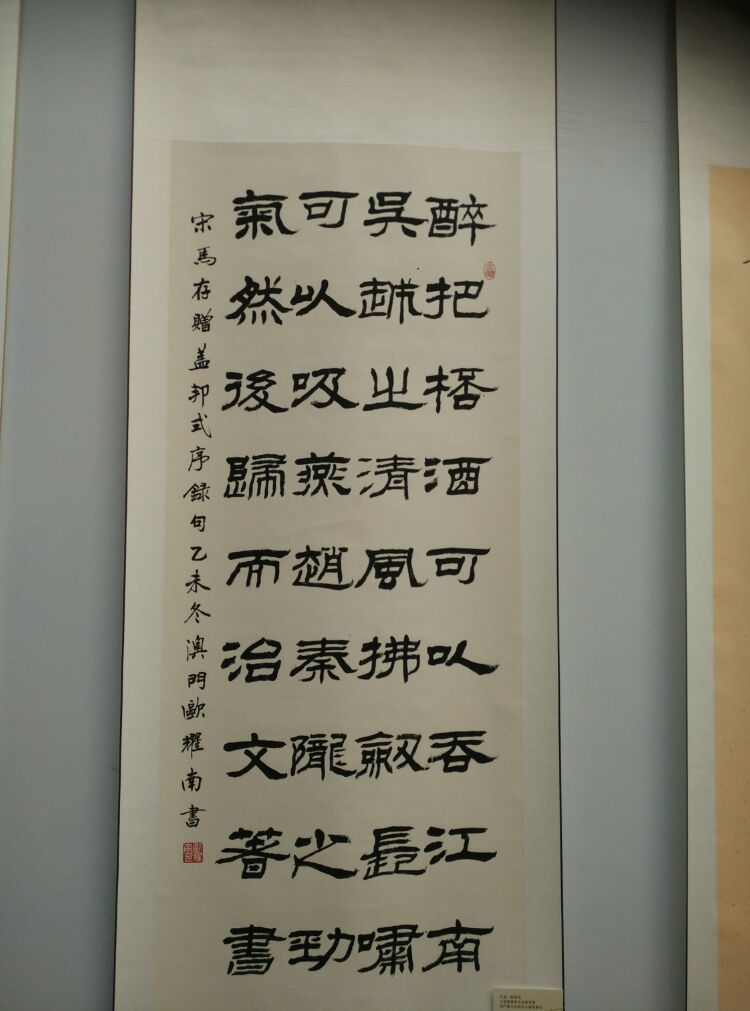 醉把桮酒可以吞江南
吳越之清風拂劔長嘯
可以吸燕趙秦隴之勁
氣然後歸而治文著書
宋馬存贈蓋邦式序錄句乙未冬澳門歐耀南書